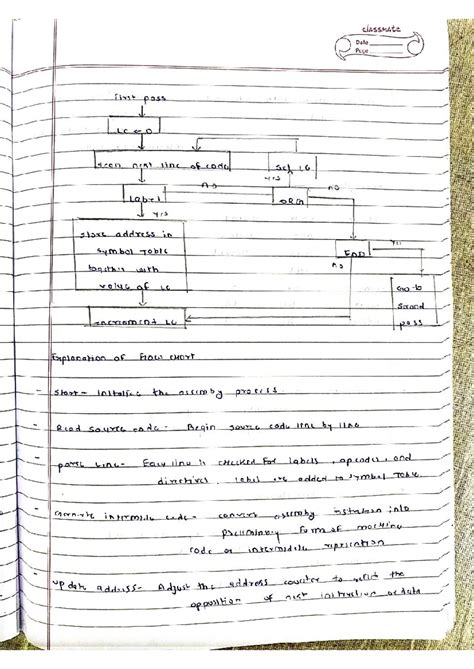 classmate
Date
Page
First pass
LC ← 0
scan next line of code
Set LC
yes
no
Label
ORG
no
yes
Store address in
symbol Table
together with
value of LC
END
yes
no
Go to
Second
pass
increment LC
Explanation of Flow chart
- Start - initalise the assemby process
- Read source code - Begin source code line by line
- parse line - Eacy line is checked for labels, opcodes, and
directives. Label are added to symbol Table.
- intermide code - convert assemby instruction into
preliminary form of machine
code or intermidele
- update address - Adjust the address counter to the
of next instruction or data